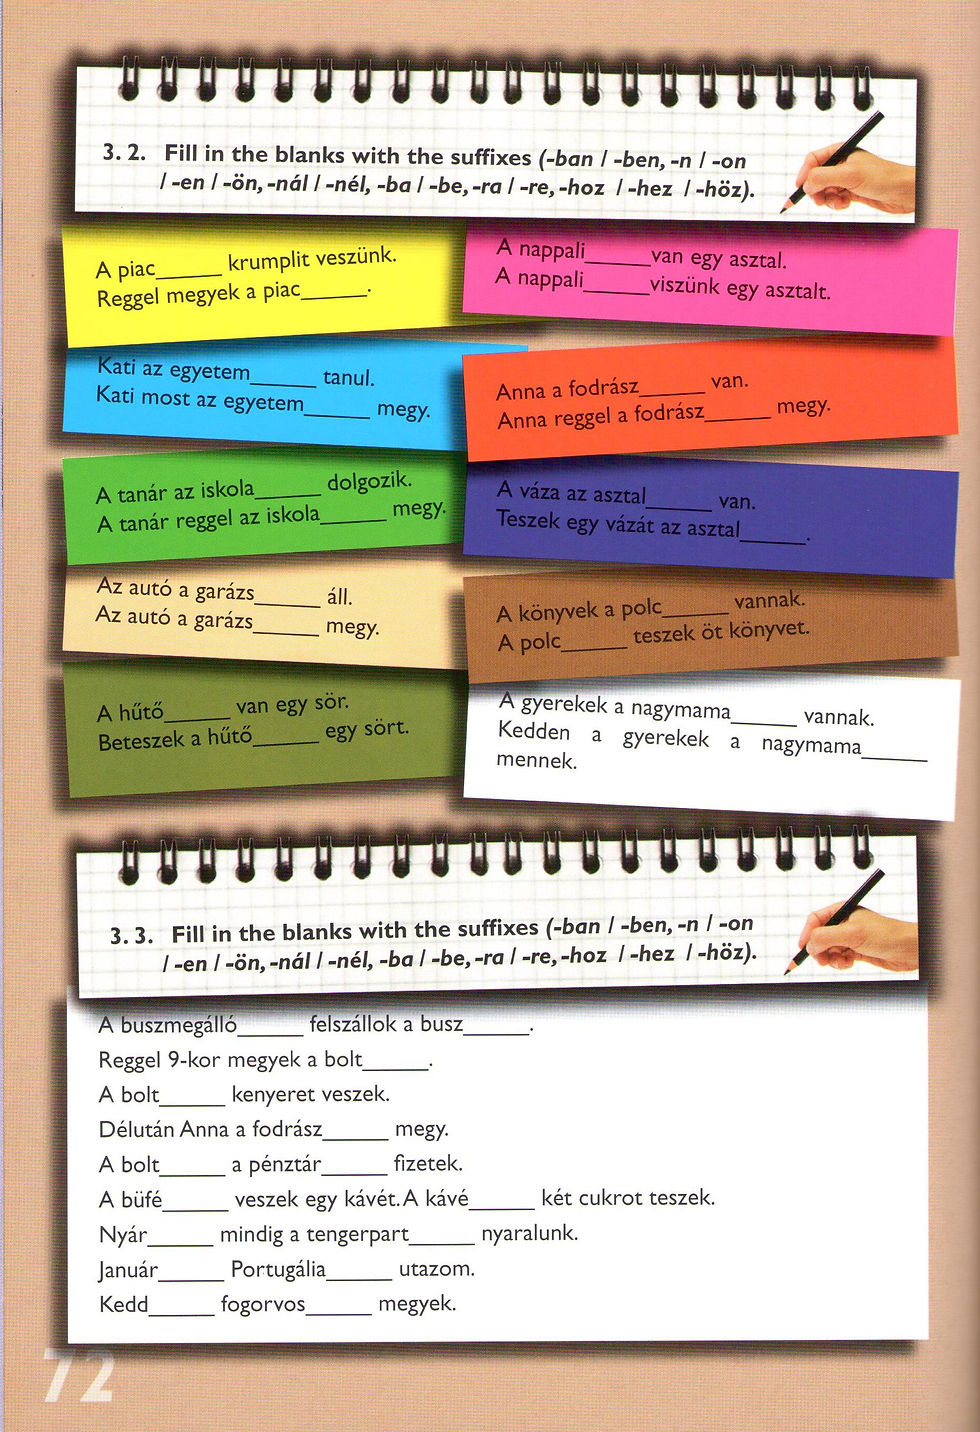 3. 2. Fill in the blanks with the suffixes (-ban / -ben, -n / -on
/ -en / -ön, -nál / -nél, -ba / -be, -ra / -re, -hoz / -hez / -höz).
A piac______ krumplit veszünk.
Reggel megyek a piac______.
A nappali______van egy asztal.
A nappali______viszünk egy asztalt.
Kati az egyetem______ tanul.
Kati most az egyetem______ megy.
Anna a fodrász______ van.
Anna reggel a fodrász______ megy.
A tanár az iskola______ dolgozik.
A tanár reggel az iskola______ megy.
A váza az asztal______ van.
Teszek egy vázát az asztal______.
Az autó a garázs______ áll.
Az autó a garázs______ megy.
A könyvek a polc______ vannak.
A polc______ teszek öt könyvet.
A hűtő______ van egy sör.
Beteszek a hűtő______ egy sört.
A gyerekek a nagymama______ vannak.
Kedden a gyerekek a nagymama______
mennek.
3. 3. Fill in the blanks with the suffixes (-ban / -ben, -n / -on
/ -en / -ön, -nál / -nél, -ba / -be, -ra / -re, -hoz / -hez / -höz).
A buszmegálló______ felszállok a busz______.
Reggel 9-kor megyek a bolt______.
A bolt______ kenyeret veszek.
Délután Anna a fodrász______ megy.
A bolt______ a pénztár______ fizetek.
A büfé______ veszek egy kávét. A kávé______ két cukrot teszek.
Nyár______ mindig a tengerpart______ nyaralunk.
Január______ Portugália______ utazom.
Kedd______ fogorvos______ megyek.
72